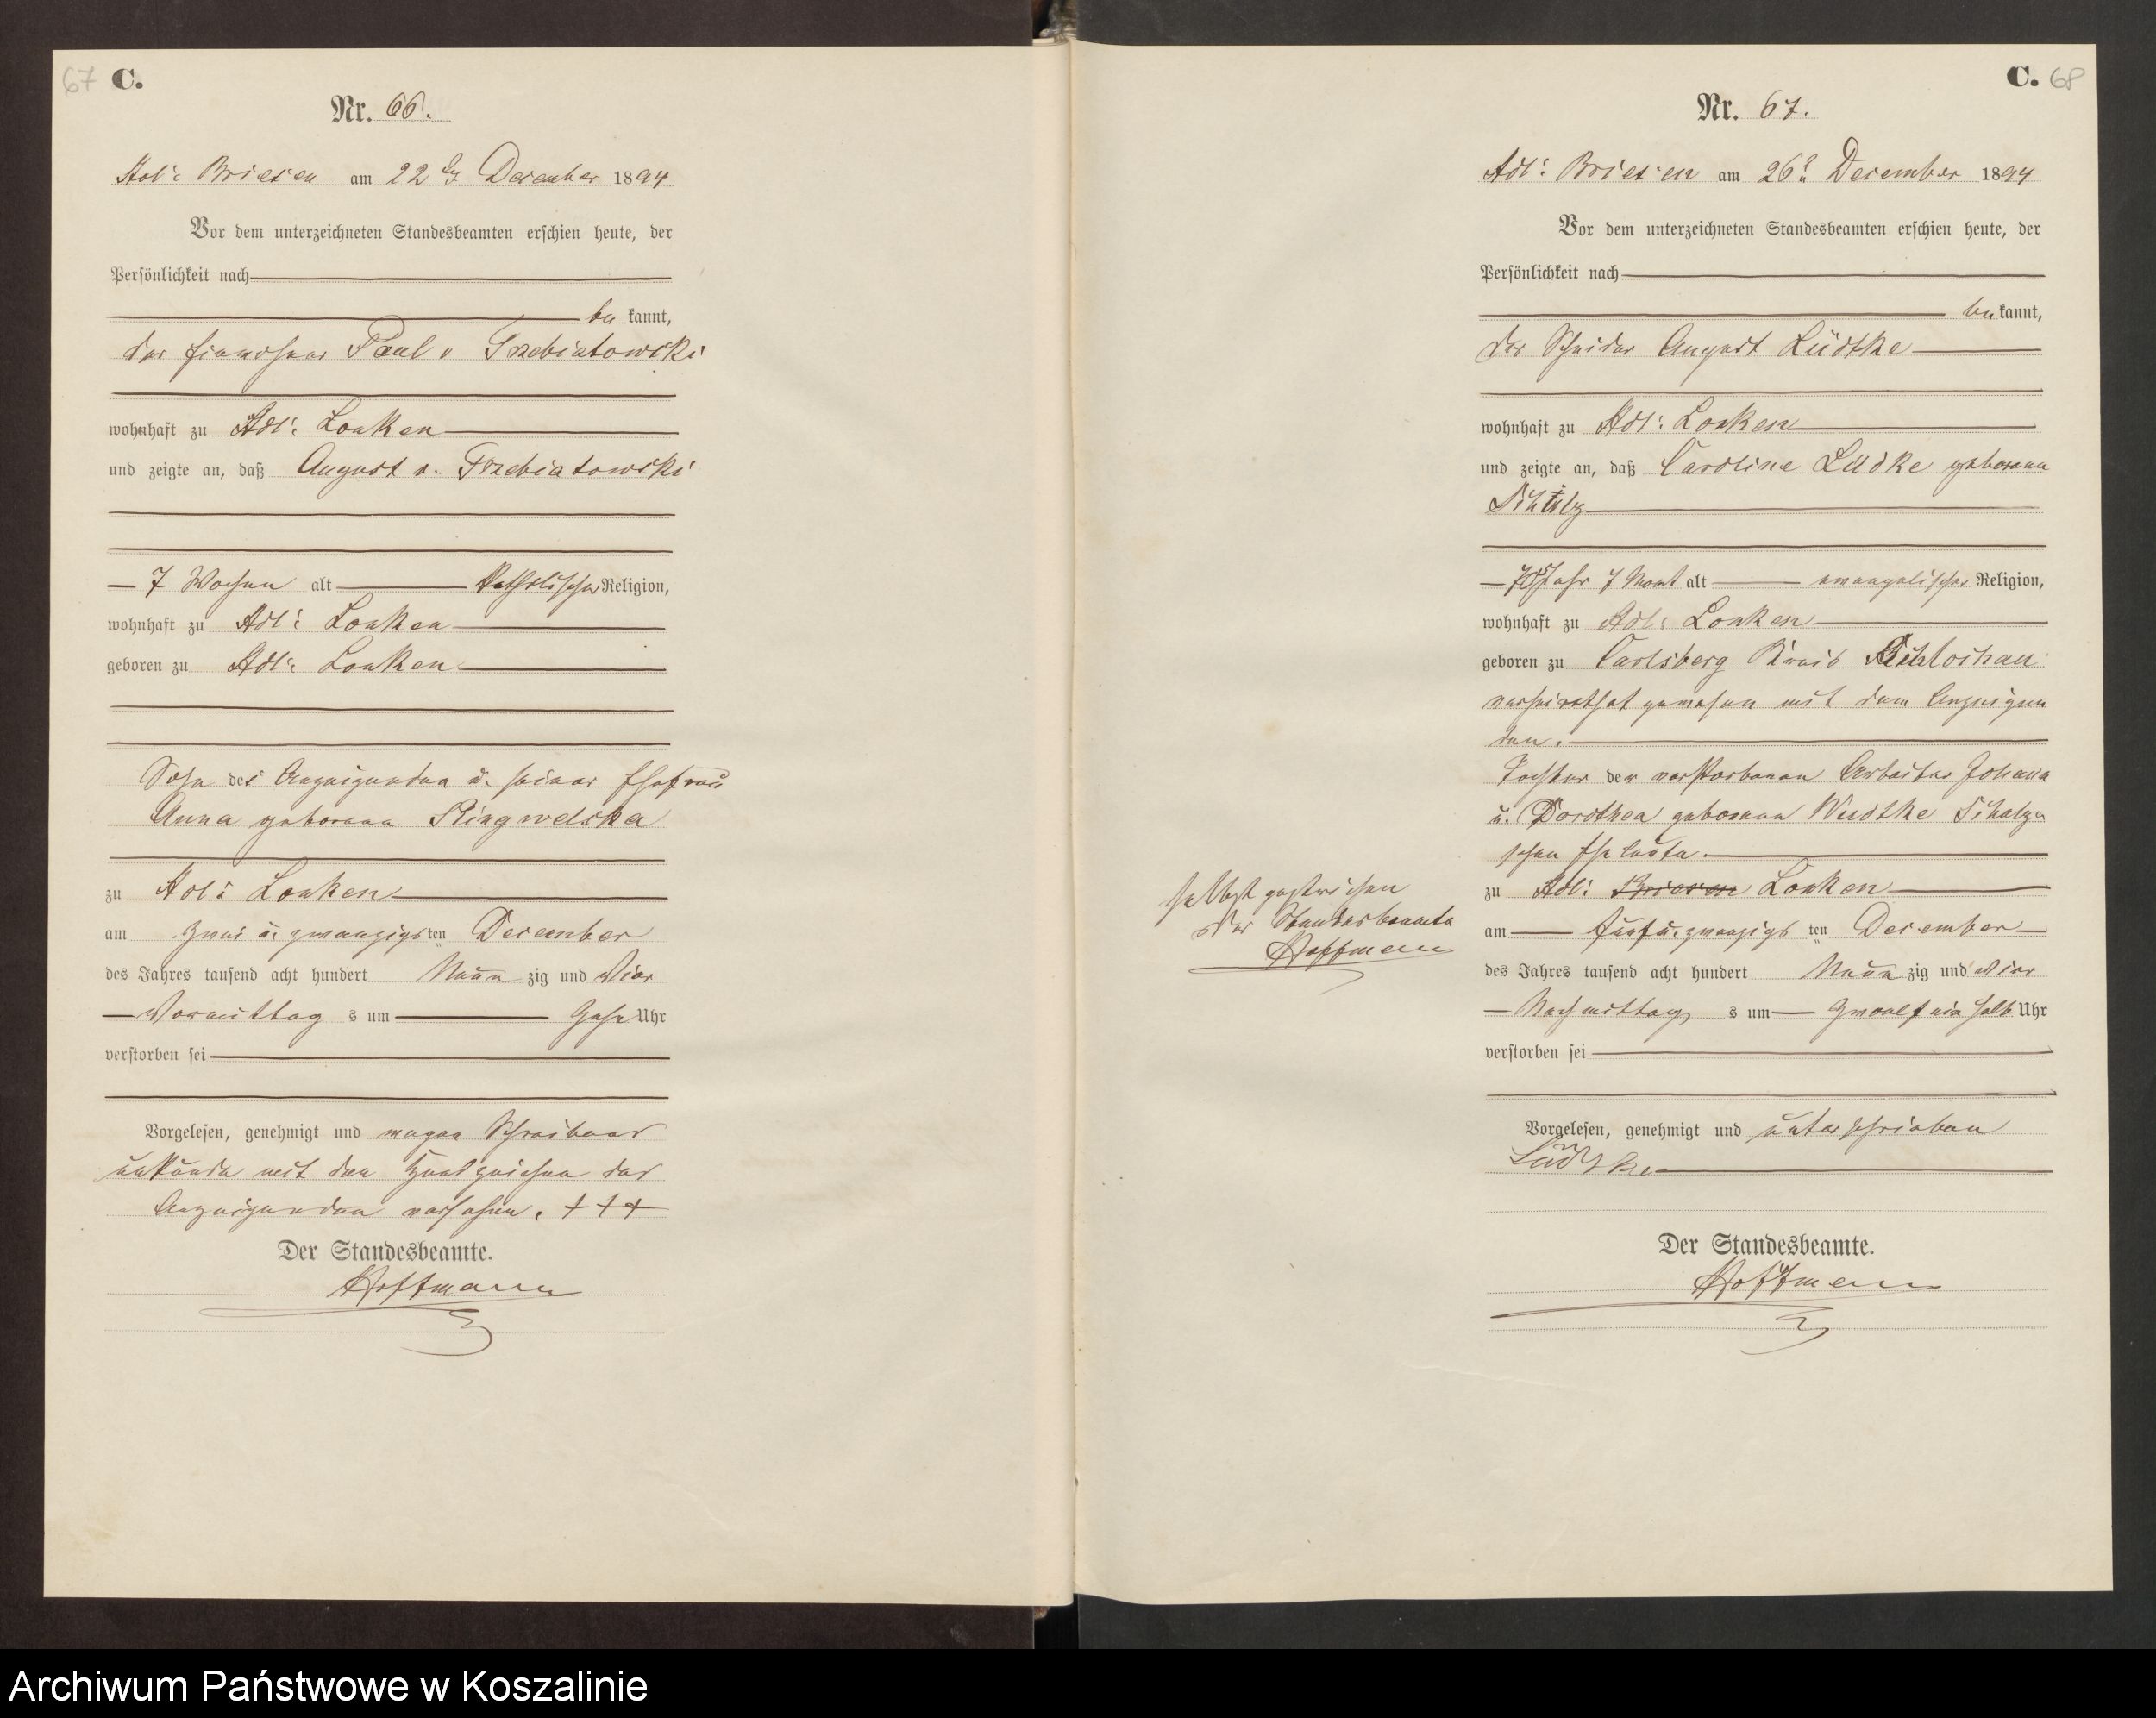 67 C.
Nr. 66.
Adl: Briesen am 22 ten December 1894
Vor dem unterzeichneten Standesbeamten erschien heute, der
Persönlichkeit nach
be kannt,
der Einwohner Paul v Trzebiatowski
wohnhaft zu Adl: Lonken
und zeigte an, daß August v. Trzebiatowski
7 Wochen alt katholischer Religion,
wohnhaft zu Adl: Lonken
geboren zu Adl: Lonken
Sohn des Anzeigenden u. seiner Ehefrau
Anna geborene Ringwelska
zu Adl: Lonken
am zwei u. zwanzigs ten December
des Jahres tausend acht hundert Neun zig und Vier
Vormittag s um Zehn Uhr
verstorben sei
Vorgelesen, genehmigt und wegen Schreibens
unkunde mit den Handzeichen des
Anzeigenden versehen. + + +
Der Standesbeamte.
Hoffmann
C. 68
Nr. 67.
Adl: Briesen am 26 December 1894
Vor dem unterzeichneten Standesbeamten erschien heute, der
Persönlichkeit nach
be kannt,
der Schneider August Lüdtke
wohnhaft zu Adl: Lonken
und zeigte an, daß Caroline Lüdke geborene
Schulz
Jahr 7 Monat alt evangelischer Religion,
wohnhaft zu Adl: Lonken
geboren zu Carlsberg Kreis Schlochau
verheirathet gewesen mit dem Anzeigen
den.
Tochter der verstorbenen Arbeiter Johann
u. Dorothea geborene Wudtke Schulze
schen Eheleute.
zu Adl: Briesen Lonken
am fünf u. zwanzigs ten December
des Jahres tausend acht hundert Neun zig und Vier
Nachmittag s um Zwoelf ein halb Uhr
verstorben sei
Vorgelesen, genehmigt und unterschrieben
Lüdtke
Der Standesbeamte.
Hoffmann
selbst gestrichen
Der Standesbeamte
Hoffmann
Archiwum Państwowe w Koszalinie